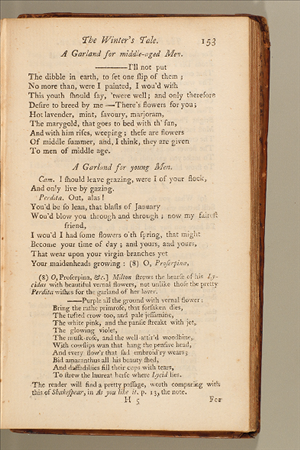 The Winter's Tale. 153
A Garland for middle-aged Men.
———I'll not put
The dibble in earth, to set one slip of them;
No more than, were I painted, I wou'd wish
This youth should say, 'twere well; and only therefore
Desire to breed by me—There's flowers for you;
Hot lavender, mint, savoury, marjoram,
The marygold, that goes to bed with th' sun,
And with him rises, weeping; these are flowers
Of middle summer, and, I think, they are given
To men of middle age.
A Garland for young Men.
Cam. I should leave grazing, were I of your flock,
And only live by gazing.
Perdita. Out, alas!
You'd be so lean, that blasts of January
Wou'd blow you through and through; now my fairest
friend,
I wou'd I had some flowers o'th spring, that might
Become your time of day; and yours, and yours,
That wear upon your virgin-branches yet
Your maidenheads growing: (8) O, Proserpina,
(8) O, Proserpina, &c.] Milton strews the hearse of his Ly-
cidas with beautiful vernal flowers, not unlike those the pretty
Perdita wishes for the garland of her lover.
——Purple all the ground with vernal flower;
Bring the rathe primrose, that forsaken dies,
The tufted crow toe, and pale jessamine,
The white pink, and the pansie streakt with jet,
The glowing violet,
The musk-rose, and the well-attir'd woodbine,
With cowslips wan that hang the pensive head,
And every flow'r that sad embroid'ry wears;
Bid amaranthus all his beauty shed,
And daffadillies fill their cups with tears,
To strew the laureat herse where Lycid lies.
The reader will find a pretty passage, worth comparing with
this of Shakespear, in As you like it. p. 13, the note.
H 5 For